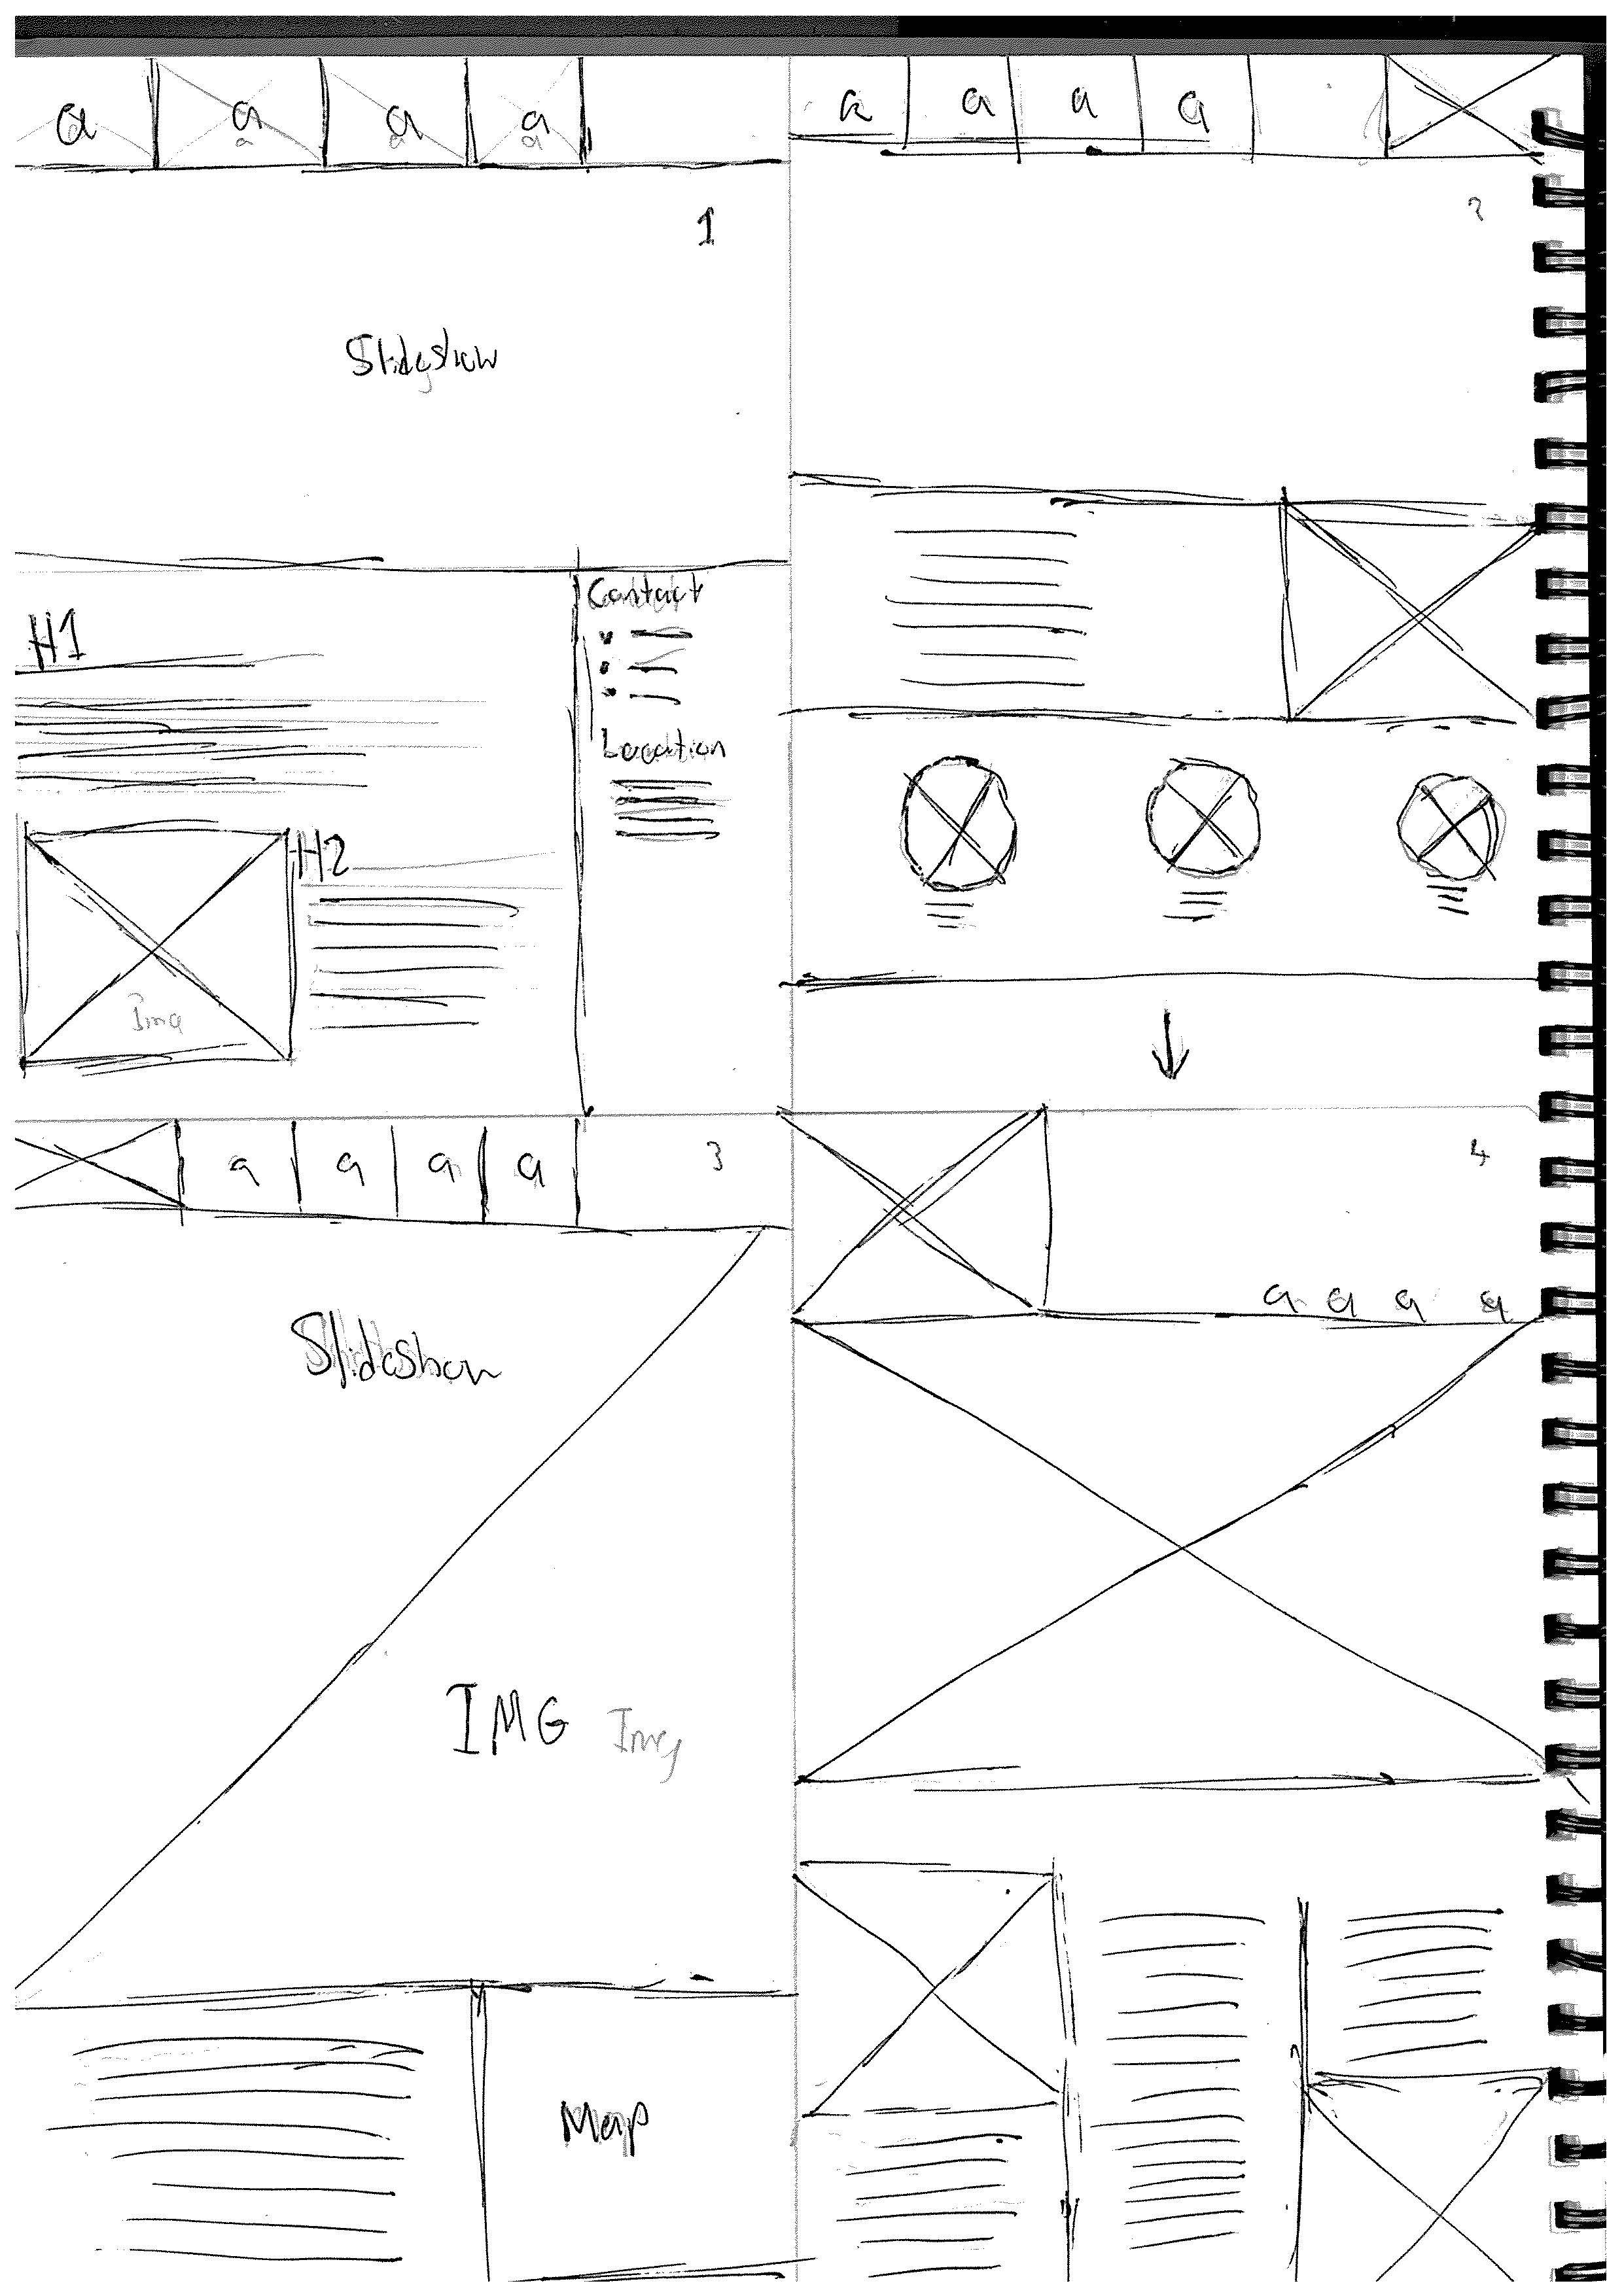 a a a a
a a a
1
Slideshow
H1
Contact
Location
H2
Img
a a a a
2
a a a a
3
Slideshow
IMG Img
Map
4
a a a a